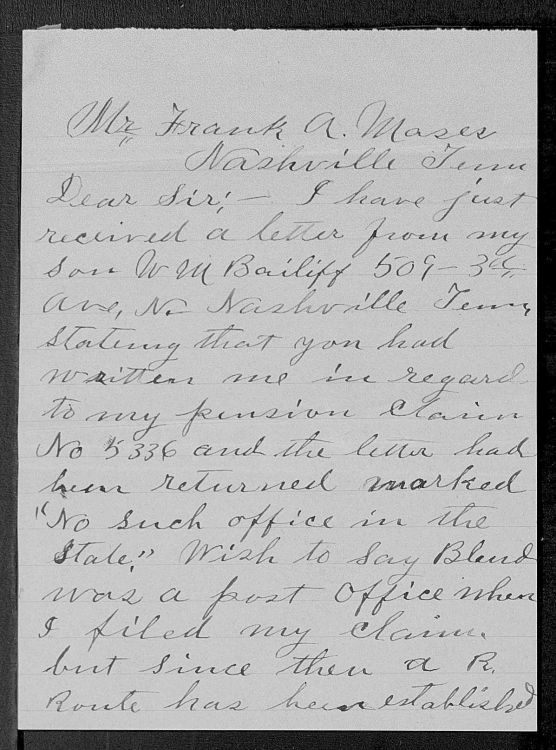 Mr Frank A. Moses
Nashville Tenn
Dear Sir:— I have just
received a letter from my
son W M Bailiff 509 – 3rd
Ave, N– Nashville Tenn,
stateing that you had
written me in regard
to my pension Claim
No 5336 and the letter had
been returned marked
"No such office in the
State." Wish to say Blend
was a post Office when
I filed my claim.
but since then a R.
Route has been established